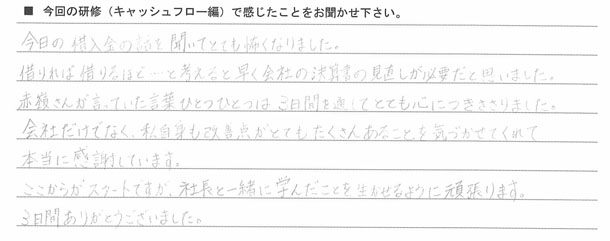 ■ 今回の研修（キャッシュフロー編）で感じたことをお聞かせ下さい。
今日の借入金の話を聞いてとても怖くなりました。
借りれば借りるほど…と考えると早く会社の決算書の見直しが必要だと思いました。
赤嶺さんが言っていた言葉ひとつひとつは3日間を通してとても心につきささりました。
会社だけでなく、私自身も改善点がとてもたくさんあることを気づかせてくれて
本当に感謝しています。
ここからがスタートですが、社長と一緒に学んだことを生かせるように頑張ります。
3日間ありがとうございました。